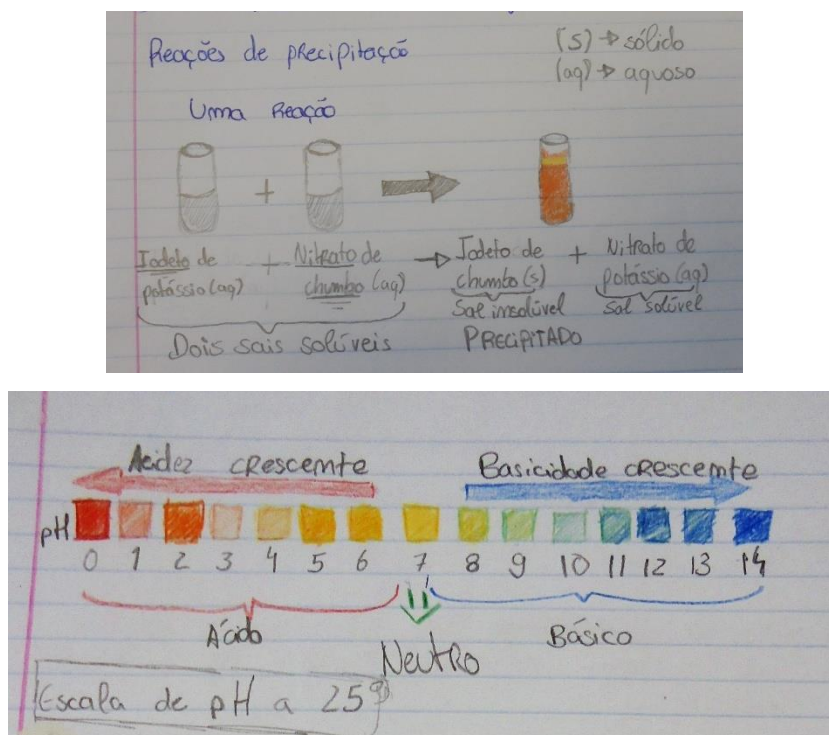 Reações de precipitação
(s) → sólido
(aq) → aquoso
Uma Reação
+ →
Iodeto de potássio (aq) + Nitrato de chumbo (aq) → Iodeto de chumbo (s) + Nitrato de potássio (aq)
Sal insolúvel Sal solúvel
Dois sais solúveis PRECIPITADO
Acidez crescente Basicidade crescente
pH
0 1 2 3 4 5 6 7 8 9 10 11 12 13 14
Ácido Básico
Neutro
Escala de pH a 25º